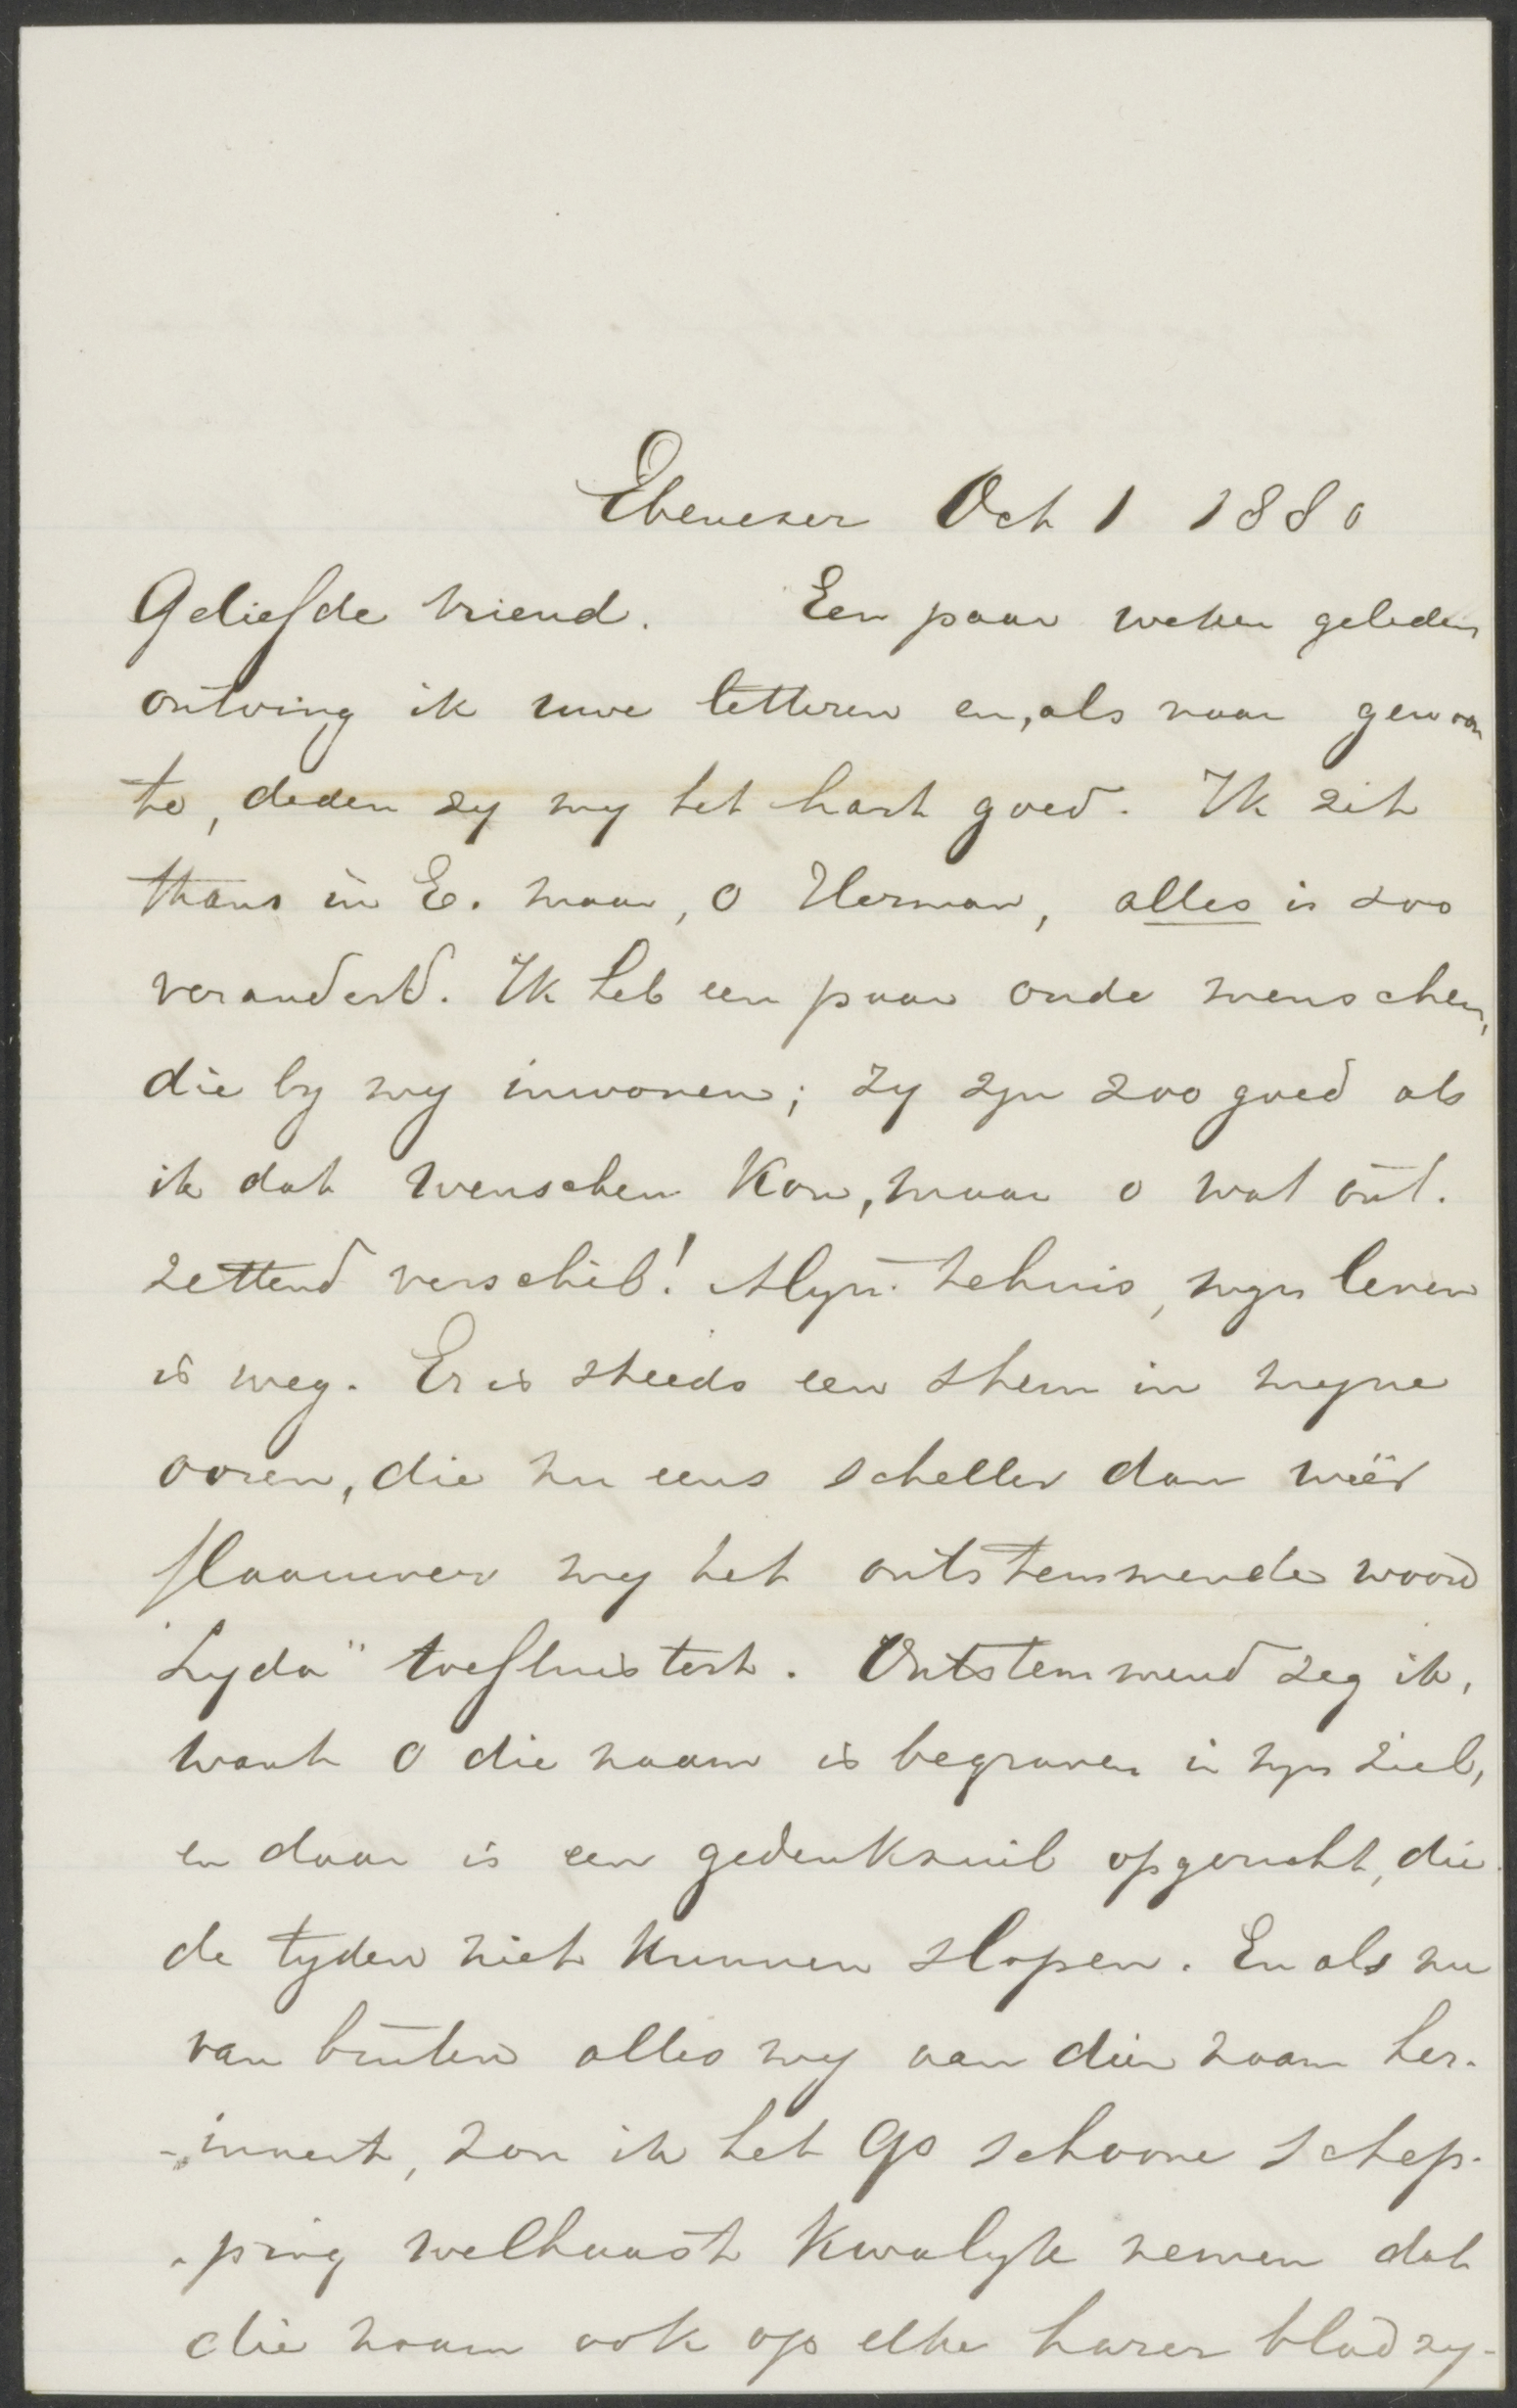 Ebenezer Oct 1 1880
Geliefde vriend. Een paar weken geleden
ontving ik uwe letteren en, als naar gewoon
te, deden zy my het hart goed. Ik zit
thans in E. maar, o Herman, alles is zoo
veranderd. Ik heb een paar oude menschen,
die by my inwonen; zy zyn zoo goed als
ik dat wenschen kon, maar o wat ont-
zettend verschil! Myn tehuis, myn leven
is weg. Er is steeds een stem in myne
ooren, die nu eens scheller dan weër
flaauwer my het ontstemmende woord
"Lyda" toefluistert. Ontstemmend zeg ik,
want o die naam is begraven in myn ziel,
en daar is een gedenkzuil opgericht, die
de tyden niet kunnen slopen. En als nu
van buiten alles my aan dien naam her-
-innert, zou ik het Gs schoone schep-
-ping welhaast kwalyk nemen dat
die naam ook op elke harer bladzy-